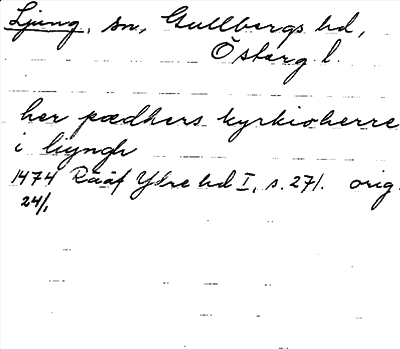 Ljung, sn, Gullbergs hd,
Österg l.
her pædhers kyrkioherre
i liyngh
1474 Rääf Ydre hd I, s. 271. orig.
24/1